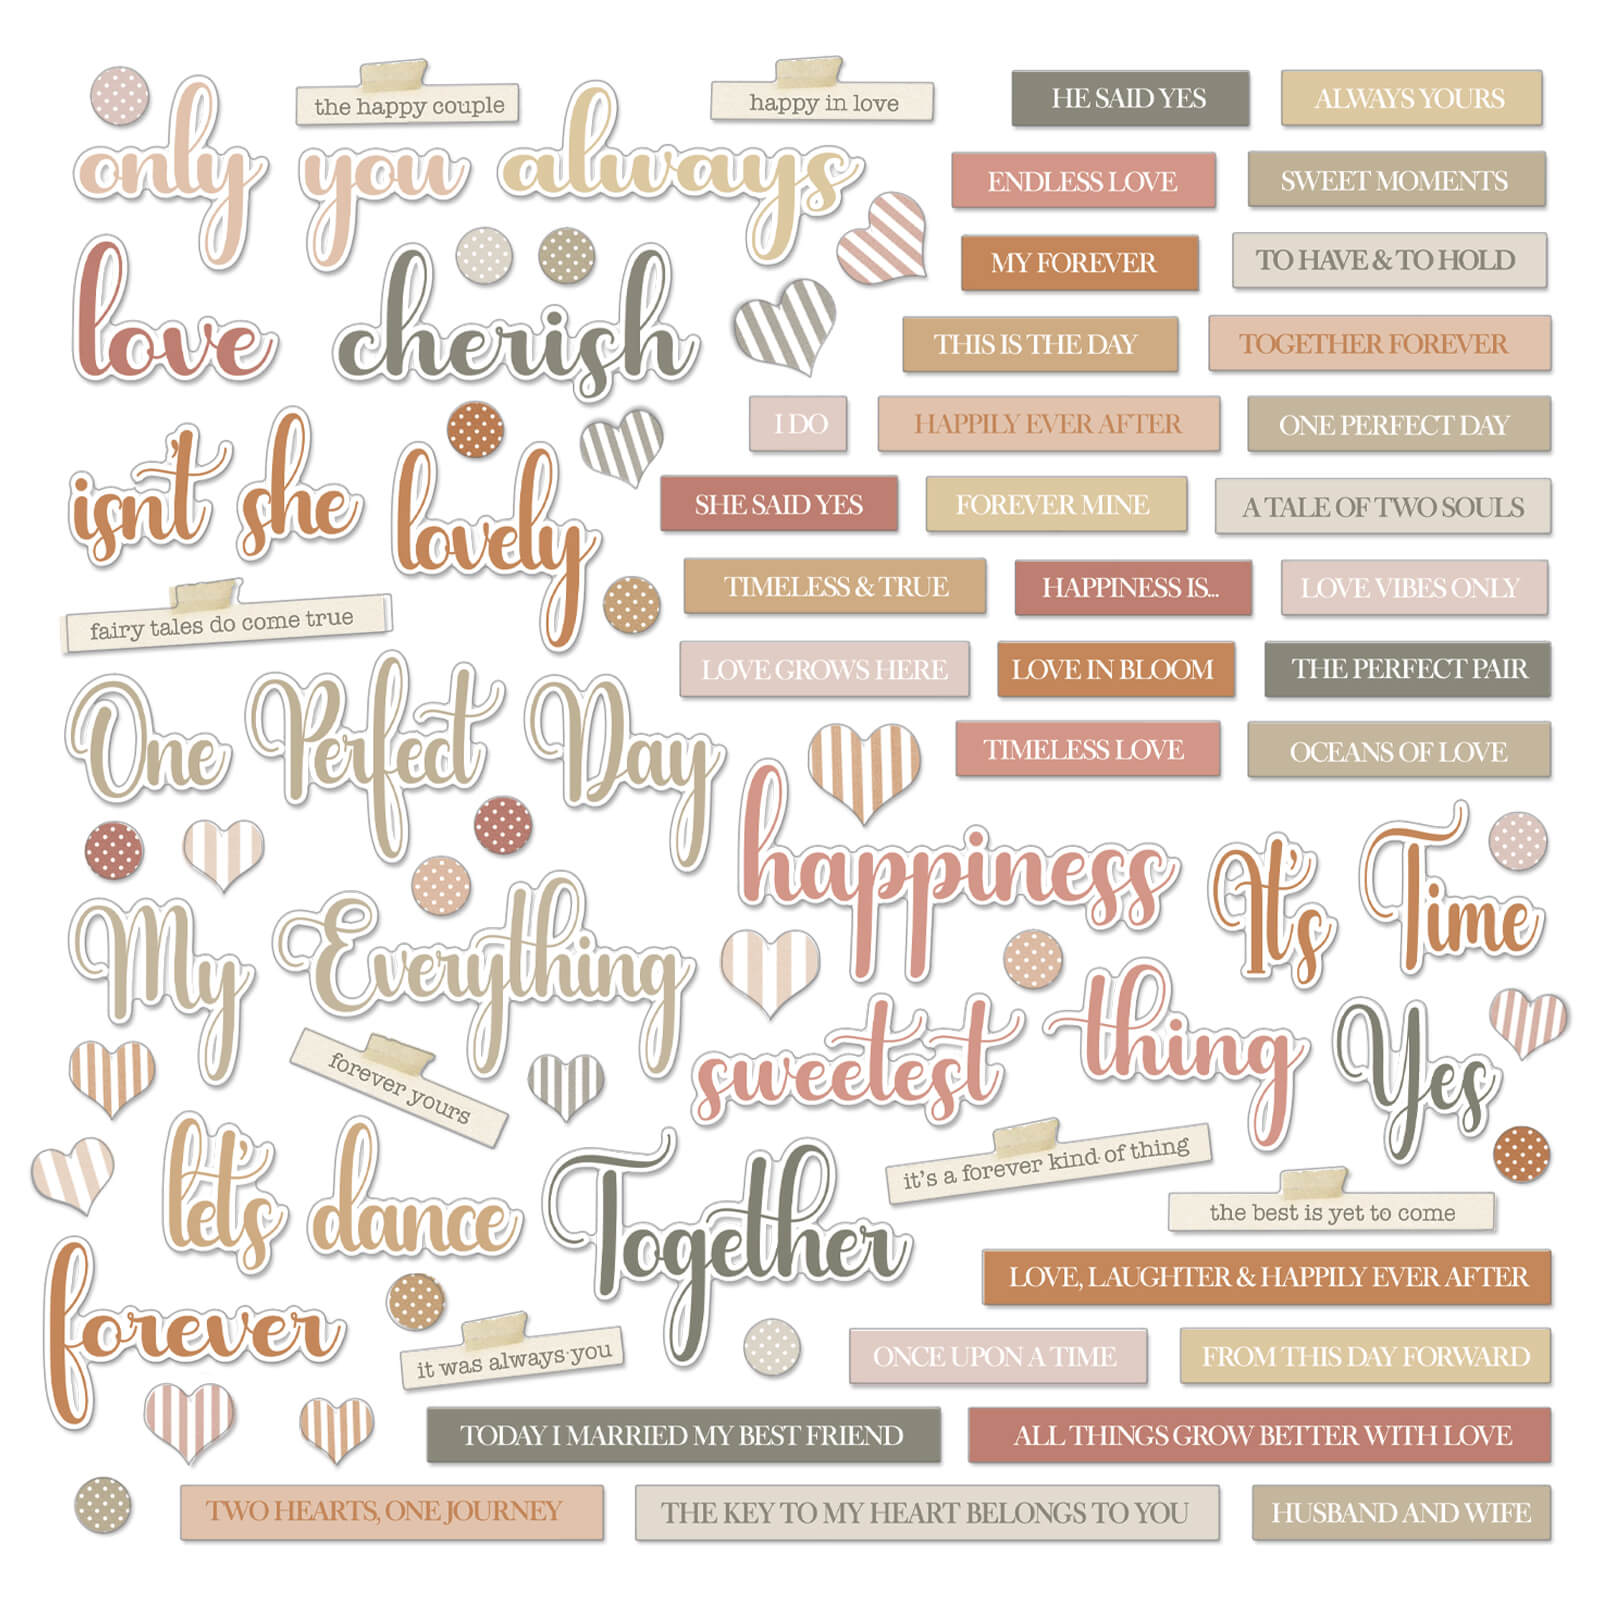 the happy couple
happy in love
HE SAID YES
ALWAYS YOURS
only you always
ENDLESS LOVE
SWEET MOMENTS
MY FOREVER
TO HAVE & TO HOLD
love cherish
THIS IS THE DAY
TOGETHER FOREVER
I DO
HAPPILY EVER AFTER
ONE PERFECT DAY
isn't she lovely
SHE SAID YES
FOREVER MINE
A TALE OF TWO SOULS
TIMELESS & TRUE
HAPPINESS IS...
LOVE VIBES ONLY
fairy tales do come true
LOVE GROWS HERE
LOVE IN BLOOM
THE PERFECT PAIR
One Perfect Day
TIMELESS LOVE
OCEANS OF LOVE
happiness
It's Time
My Everything
sweetest thing
Yes
forever yours
it's a forever kind of thing
the best is yet to come
let's dance
Together
LOVE, LAUGHTER & HAPPILY EVER AFTER
forever
it was always you
ONCE UPON A TIME
FROM THIS DAY FORWARD
TODAY I MARRIED MY BEST FRIEND
ALL THINGS GROW BETTER WITH LOVE
TWO HEARTS, ONE JOURNEY
THE KEY TO MY HEART BELONGS TO YOU
HUSBAND AND WIFE